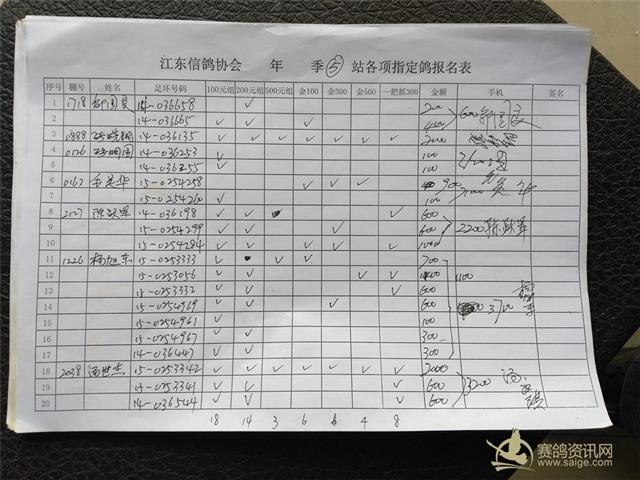 江东信鸽协会 年 季⑤ 站各项指定鸽报名表
序号 棚号 姓名 足环号码 100元组 200元组 500元组 金100 金300 金500 一把抓300 金额 手机 签名
1 1718 14-036658 ✓ 200
2 14-036665 ✓ ✓ ✓ 400 600
3 0888 14-036135 ✓ ✓ ✓ ✓ ✓ ✓ ✓ 2000
4 0126 14-036253 ✓ 100
5 ✓ 100
6 0167 15-0254258 ✓ ✓ ✓ 900
7 ✓ 100
8 2127 陈跃军 14-036198 ✓ ✓ ✓ 600
9 15-0254299 ✓ ✓ ✓ 600 2200 陈跃军
10 15-0254284 ✓ ✓ ✓ ✓ ✓ 1000
11 1226 杨旭东 15-0253333 ✓ ✓ ✓ 700
12 15-0253056 ✓ ✓ ✓ ✓ 1100
13 15-0253332 ✓ ✓ ✓ 600
14 15-0254969 ✓ ✓ ✓ 600 3700
15 15-0254961 ✓ 100
16 15-0254967 ✓ ✓ 300
17 14-036447 ✓ ✓ 300
18 2038 汤世杰 15-0253342 ✓ ✓ ✓ ✓ ✓ ✓ ✓ 2000
19 15-0253341 ✓ ✓ ✓ 600 3200
20 14-036544 ✓ ✓ ✓ 600
18 14 3 6 6 4 8
赛鸽资讯网
www.saige.com